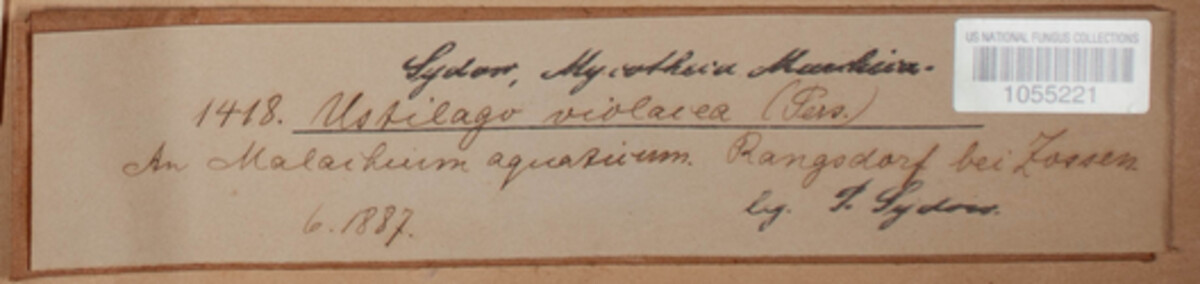 Sydow, Mycotheca Marchica.
US NATIONAL FUNGUS COLLECTIONS
1055221
1418. Ustilago violacea (Pers.)
An Malachium aquaticum. Rangsdorf bei Zossen.
6. 1887.
leg. P. Sydow.